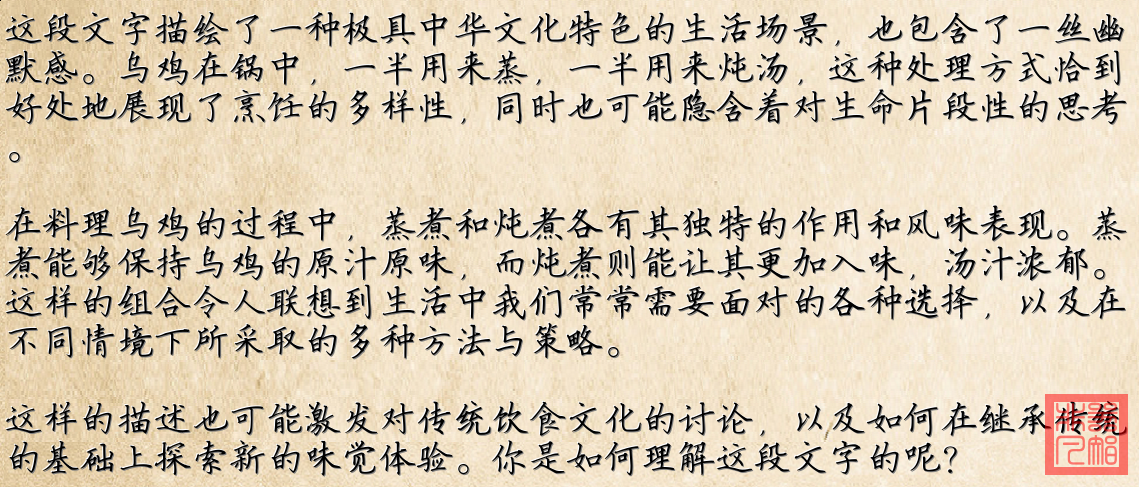 这段文字描绘了一种极具中华文化特色的生活场景，也包含了一丝幽
默感。乌鸡在锅中，一半用来蒸，一半用来炖汤，这种处理方式恰到
好处地展现了烹饪的多样性，同时也可能隐含着对生命片段性的思考
。
在料理乌鸡的过程中，蒸煮和炖煮各有其独特的作用和风味表现。蒸
煮能够保持乌鸡的原汁原味，而炖煮则能让其更加入味，汤汁浓郁。
这样的组合令人联想到生活中我们常常需要面对的各种选择，以及在
不同情境下所采取的多种方法与策略。
这样的描述也可能激发对传统饮食文化的讨论，以及如何在继承传统
的基础上探索新的味觉体验。你是如何理解这段文字的呢？